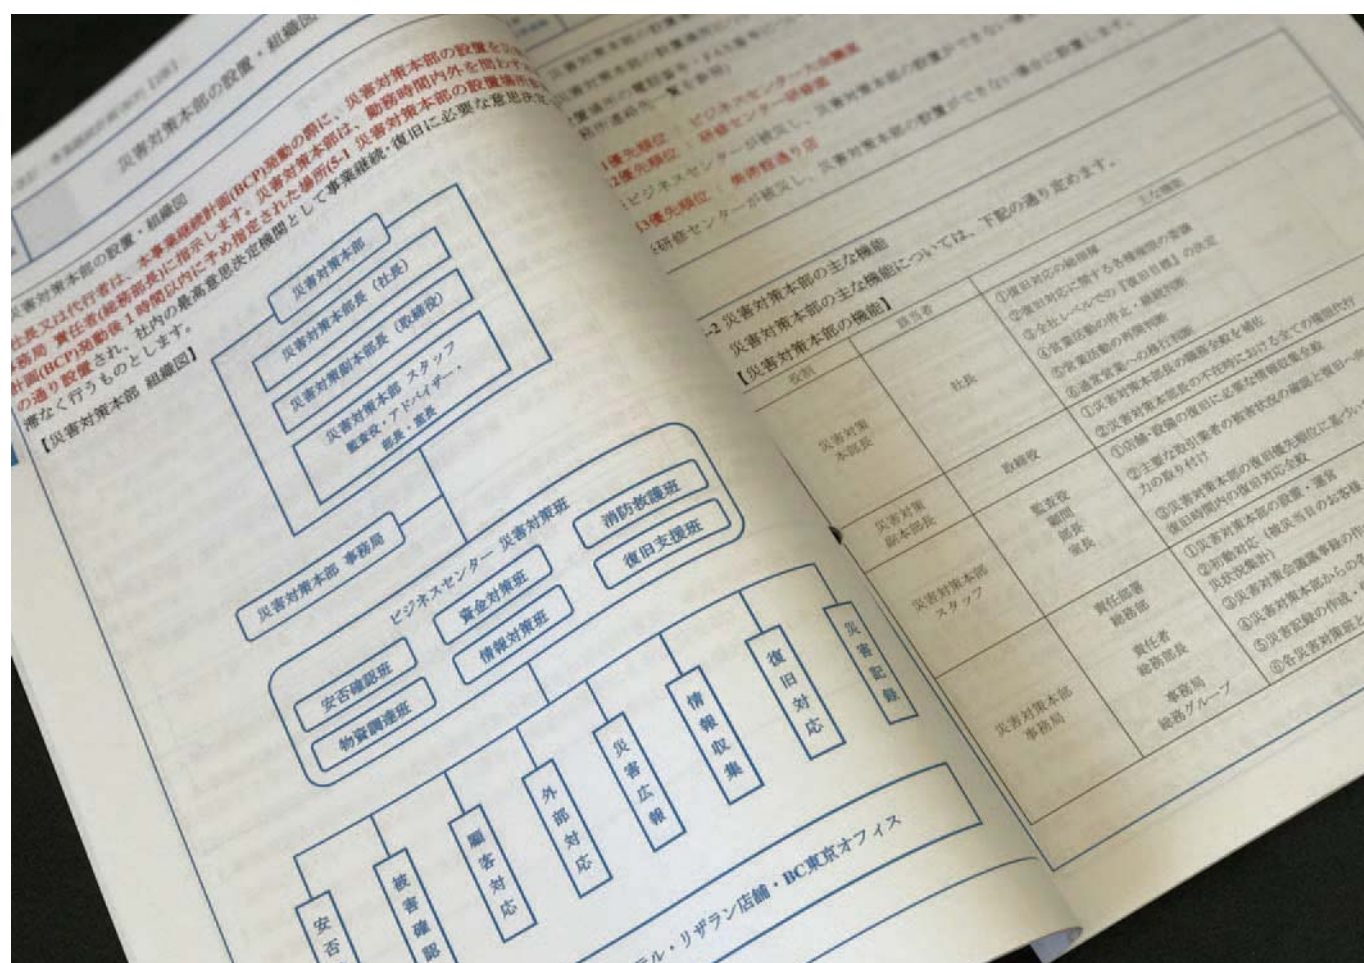 災害対策本部の設置・組織図
災害対策本部の設置・組織図
社長又は代行者は、本事業継続計画(BCP)発動の際に、災害対策本部の設置を
務局 責任者(総務部長)に指示します。災害対策本部は、勤務時間内外を問わず
計画(BCP)発動後1時間以内に予め指定された場所(5-1 災害対策本部の設置場所
の通り設置され、社内の最高意思決定機関として事業継続・復旧に必要な意思決定
滞なく行うものとします。
【災害対策本部 組織図】
災害対策本部
災害対策本部長（社長）
災害対策副本部長（取締役）
災害対策本部 スタッフ
監査役・アドバイザー・
部長・室長
災害対策本部 事務局
ビジネスセンター 災害対策班
安否確認班
物資調達班
資金対策班
情報対策班
消防救護班
復旧支援班
安否
被害確認
顧客対応
外部対応
災害広報
情報収集
復旧対応
災害記録
テル・リザラン店舗・BC東京オフィス
1優先順位 : ビジネスセンター大会議室
2優先順位 : 研修センター研修室
ビジネスセンターが被災し、災害対策本部の設置ができない
3優先順位 : 美術館通り店
研修センターが被災し、災害対策本部の設置ができない場合に設置します。
-2 災害対策本部の主な機能
災害対策本部の主な機能については、下記の通り定めます。
【災害対策本部の機能】
役割
該当者
主な機能
災害対策
本部長
社長
①復旧対応の総指揮
②復旧対応に関する各種権限の委譲
③全社レベルでの『復旧目標』の決定
④営業活動の停止・継続判断
⑤営業活動の再開判断
⑥通常営業への移行判断
災害対策
副本部長
取締役
①災害対策本部長の職務全般を補佐
②災害対策本部長の不在時における全ての権限代行
災害対策本部
スタッフ
監査役
顧問
部長
室長
①店舗・設備の復旧に必要な情報収集全般
②主要な取引業者の被害状況の確認と復旧への
力の取り付け
③災害対策本部の復旧優先順位に基づい
復旧時間内の復旧対応全般
災害対策本部
事務局
責任部署
総務部
責任者
総務部長
事務局
総務グループ
①災害対策本部の設置・運営
②初動対応（被災当日のお客様
災状況集計）
③災害対策会議議事録の作
④災害対策本部からの
⑤災害記録の作成・
⑥各災害対策班と